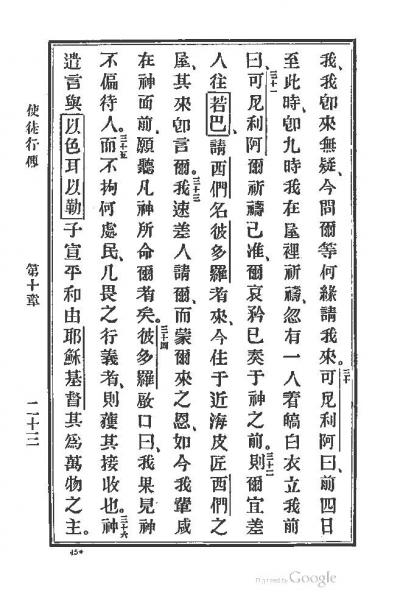 我、我卽來無疑、今問爾等何緣請我來、三十可尼利阿曰、前四日
至此時、卽九時我在屋裡祈禱、忽有一人着皜白衣立我前
曰、三十一可尼利阿爾祈禱已准、爾哀矜已奏于神之前。三十二則爾宜差
人往若巴、請西們名彼多羅者來、今住于近海皮匠西們之
屋、其來卽言爾。三十三我速差人請爾、而蒙爾來之恩、如今我輩咸
在神面前、願聽凡神所命爾者矣。三十四彼多羅啟口曰、我果見神
不偏待人。三十五而不拘何處民、凡畏之行義者、則獲其接收也。三十六神
遺言與以色耳以勒子宣平和由耶穌基督其爲萬物之主。
使徒行傳 第十章 二十三
45*
Digitized by Google